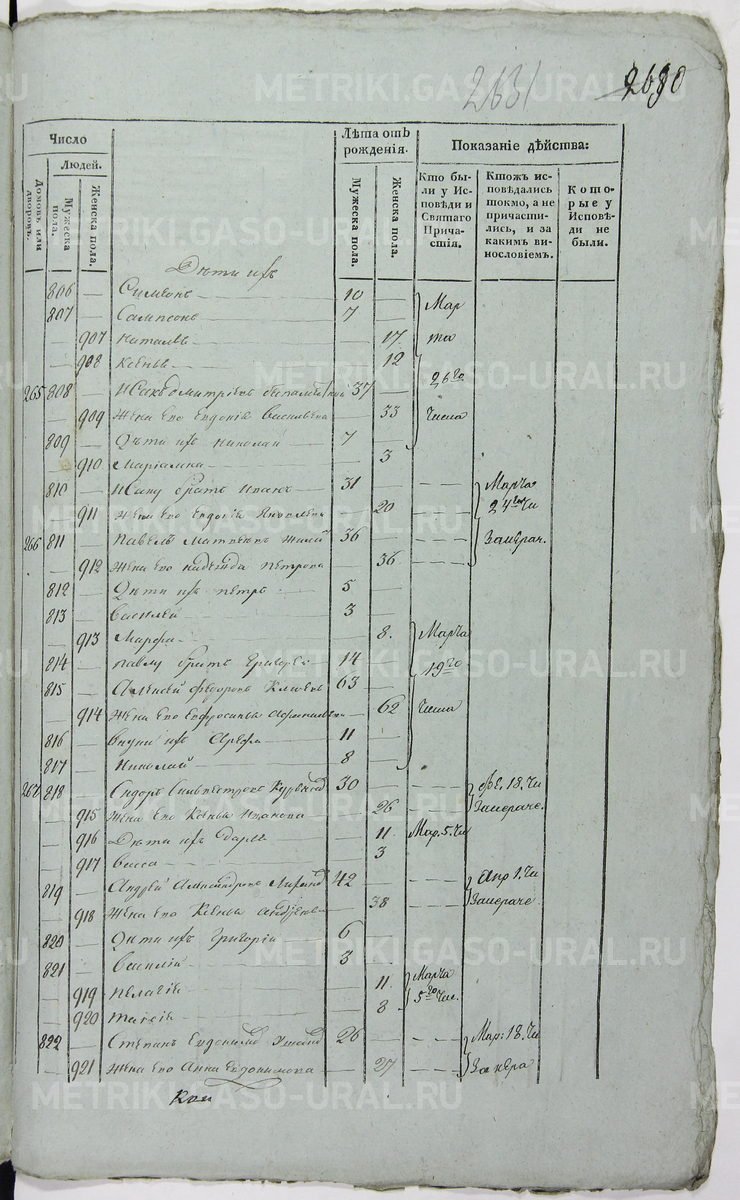 2631 2630
Число
Людей.
Домовъ или дворовъ.
Мужеска пола.
Женска пола.
Лѣта отъ рожденія.
Мужеска пола.
Женска пола.
Показаніе дѣйства:
Кто были у Исповѣди и Святаго Причастія.
Ктожъ исповѣдались токмо, а не причастились, и за какимъ винословіемъ.
Которые у Исповѣди не были.
Дѣти ихъ
806 Симеонъ 10 Мар
807 Сампсонъ 7
907 Наталья 17 та
908 Ксенья 12
265 808 Исакъ Дмитріевъ 37 26го
909 Жена его Евдокія Васильева 33 числа
809 Дѣти ихъ Николай 7
910 Маріамна 3
810 Исаку братъ Иванъ 31 Марта
911 Жена его Евдокія Яковлева 20 24го Чи
266 811 Павелъ Матвеевъ 36 Замерач.
912 Жена его Надежда Петрова 36
812 Дѣти ихъ Петръ 5
813 Василей 3
913 Марфа 8. Марта
814 Павлу братъ Григорей 14 19го
815 Алексей Федоровъ 63
914 Жена его Евфросинья 62 числа
816 Внуки ихъ Арефа 11
817 Николай 8
267 818 Сидоръ Сильвестровъ 30 Фе. 18. Чи
915 Жена его Ксенья Иванова 26 Замераче.
916 Дѣти ихъ Дарья 11. Мар. 5. Чи
917 Васса 3
819 Андрей Александровъ 42 Апр 1. Чи
918 Жена его Ксенья 38 Замераче.
820 Дѣти ихъ Григорій 6
821 Василій 3
919 Пелагія 11. Марта
920 Таисія 8 5го Чис.
822 Степанъ Евдокимовъ 26 Мар: 18. Чи
921 Жена его Анна Евдокимова 27 Замера
METRIKI.GASO-URAL.RU